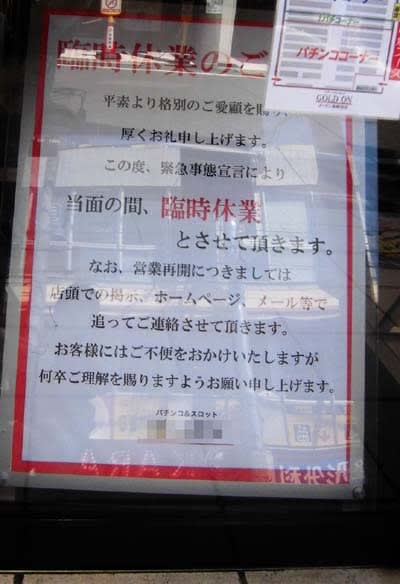 臨時休業のご
パチンココーナー
GOLD ON
平素より格別のご愛顧を賜り、
厚くお礼申し上げます。
この度、緊急事態宣言により
当面の間、臨時休業
とさせて頂きます。
なお、営業再開につきましては
店頭での掲示、ホームページ、メール等で
追ってご連絡させて頂きます。
お客様にはご不便をおかけいたしますが
何卒ご理解を賜りますようお願い申し上げます。
パチンコ&スロット